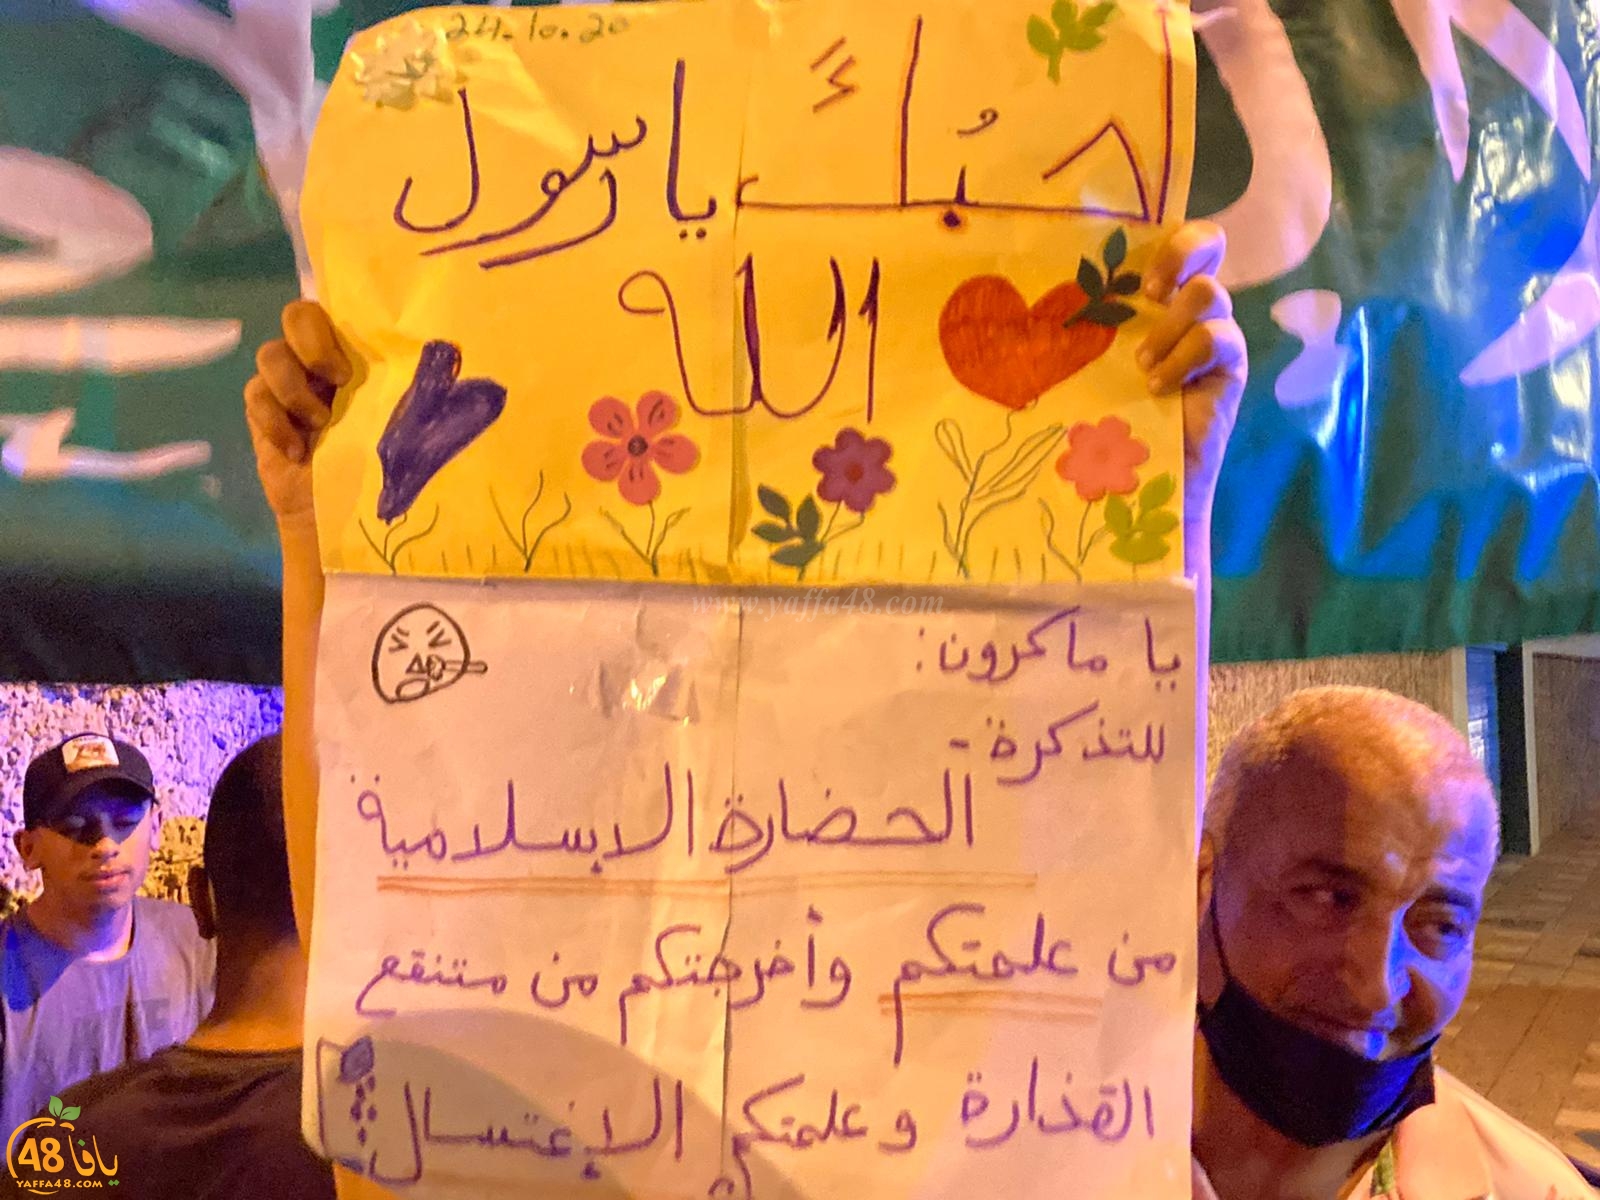 24.10.20
حُبًّا يا رسول
الله
www.yaffa48.com
يا ماكرون:
للتذكرة -
الحضارة الإسلامية
من علمتكم وأخرجتكم من متنقع
القذارة وعلمتكم الإغتسال
يافا 48
YAFFA48.COM